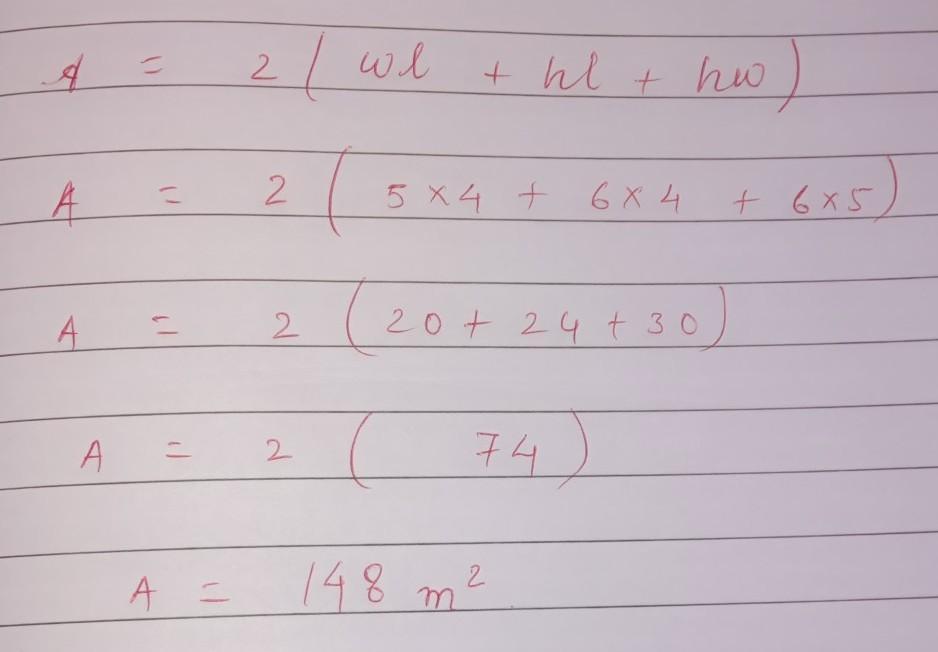 A = 2 ( wl + hl + hw )
A = 2 ( 5 × 4 + 6 × 4 + 6 × 5 )
A = 2 ( 20 + 24 + 30 )
A = 2 ( 74 )
A = 148 m²